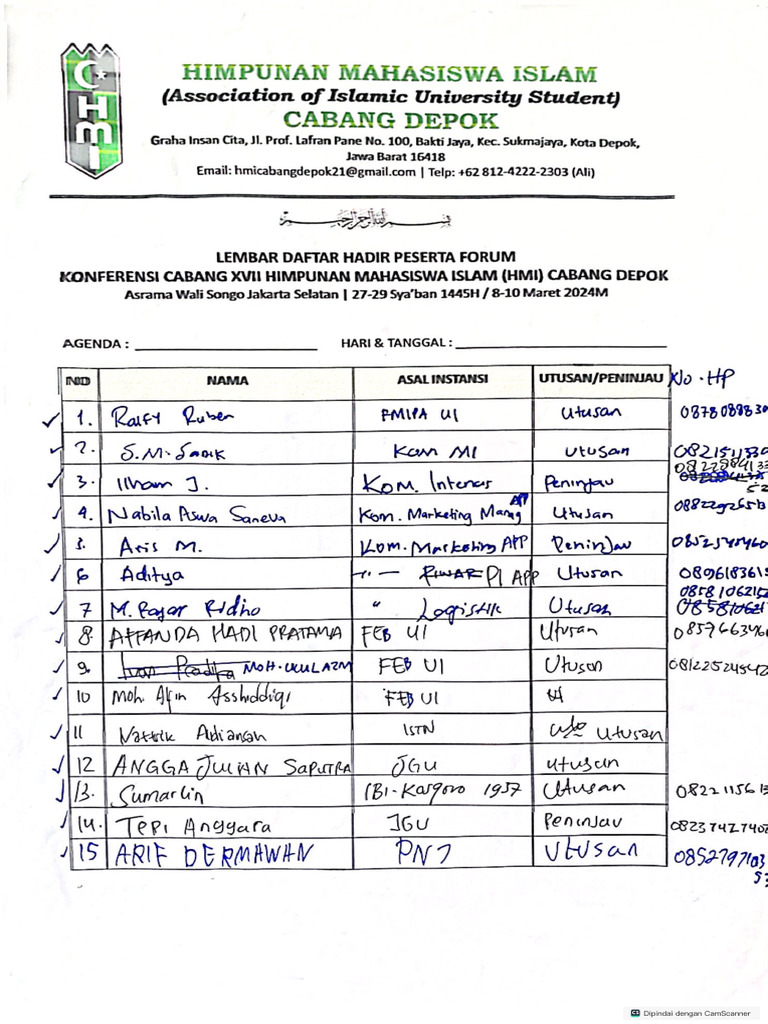 HMI
HIMPUNAN MAHASISWA ISLAM
(Association of Islamic University Student)
CABANG DEPOK
Graha Insan Cita, Jl. Prof. Lafran Pane No. 100, Bakti Jaya, Kec. Sukmajaya, Kota Depok,
Jawa Barat 16418
Email: hmicabangdepok21@gmail.com | Telp: +62 812-4222-2303 (Ali)
بسم الله الرحمن الرحيم
LEMBAR DAFTAR HADIR PESERTA FORUM
KONFERENSI CABANG XVII HIMPUNAN MAHASISWA ISLAM (HMI) CABANG DEPOK
Asrama Wali Songo Jakarta Selatan | 27-29 Sya'ban 1445H / 8-10 Maret 2024M
AGENDA : HARI & TANGGAL :
NO NAMA ASAL INSTANSI UTUSAN/PENINJAU No. HP
1. Raify Ruben FMIPA UI Utusan
2. S.M. Kom MI Utusan
3. Ilham J. Kom. Peninjau
4. Nabila Aswa Kom. Marketing APP Utusan
5. Aris M. Kom. Marketing APP Peninjau
6 Aditya PI APP Utusan
7 M. Fajar Ridho " Logistik Utusan
8 AFFANDA HADI PRATAMA FEB UI Utusan
9. MOH. ULUL AZMI FEB UI Utusan
10 Moh. Asshiddiqi FEB UI
11 ISTN Utusan
12 ANGGA JULIAN SAPUTRA JGU utusan
13. Sumarlin IBI-Kosgoro 1957 Utusan
14. Tepi Anggara JGU Peninjau
15 ARIF DERMAWAN PNJ Utusan
Dipindai dengan CamScanner